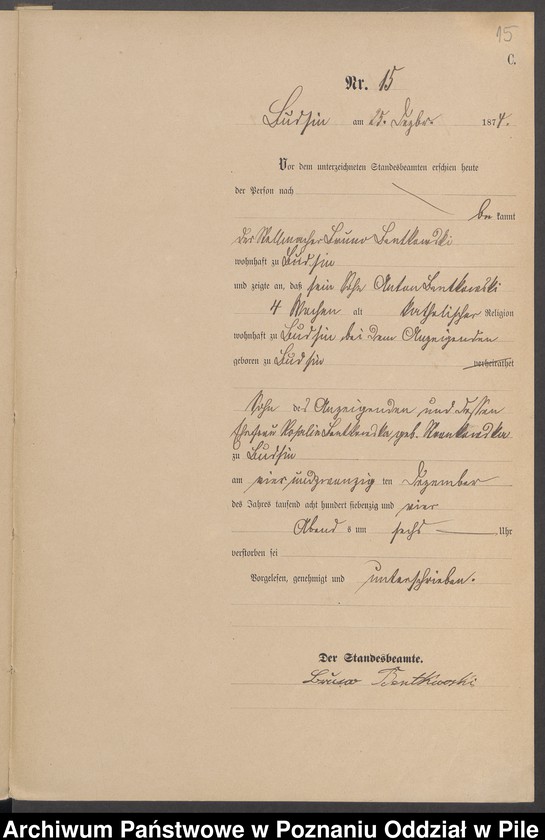 15
C.
Nr. 15
Budsin am 25. Dezbr. 1874.
Vor dem unterzeichneten Standesbeamten erschien heute
der Person nach
be kannt
der Stellmacher Bruno Bentkowski
wohnhaft zu Budsin
und zeigte an, daß sein Sohn Anton Bentkowski
4 Wochen alt katholischer Religion
wohnhaft zu Budsin bei dem Anzeigenden
geboren zu Budsin verheirathet
Sohn des Anzeigenden und dessen
Ehefrau Rosalie Bentkowska, geb.
zu Budsin
am vierundzwanzig ten Dezember
des Jahres tausend acht hundert siebenzig und vier
Abend s um sechs Uhr
verstorben sei
Vorgelesen, genehmigt und unterschrieben.
Der Standesbeamte.
Bruno Bentkowski
Archiwum Państwowe w Poznaniu Oddział w Pile